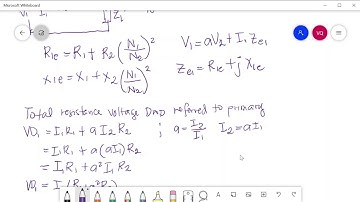 Microsoft Whiteboard
V1 I1 Z1
R1e = R1 + R2 (N1/N2)²
X1e = X1 + X2 (N1/N2)²
V1 = aV2 + I1 Ze1
Ze1 = R1e + j X1e
Total resistance voltage Drop referred to primary
VD1 = I1R1 + a I2R2 ; a = I2/I1 I2 = aI1
= I1R1 + a(aI1)R2
= I1R1 + a²I1R2
VD1 = I1(R1 + a²R2)